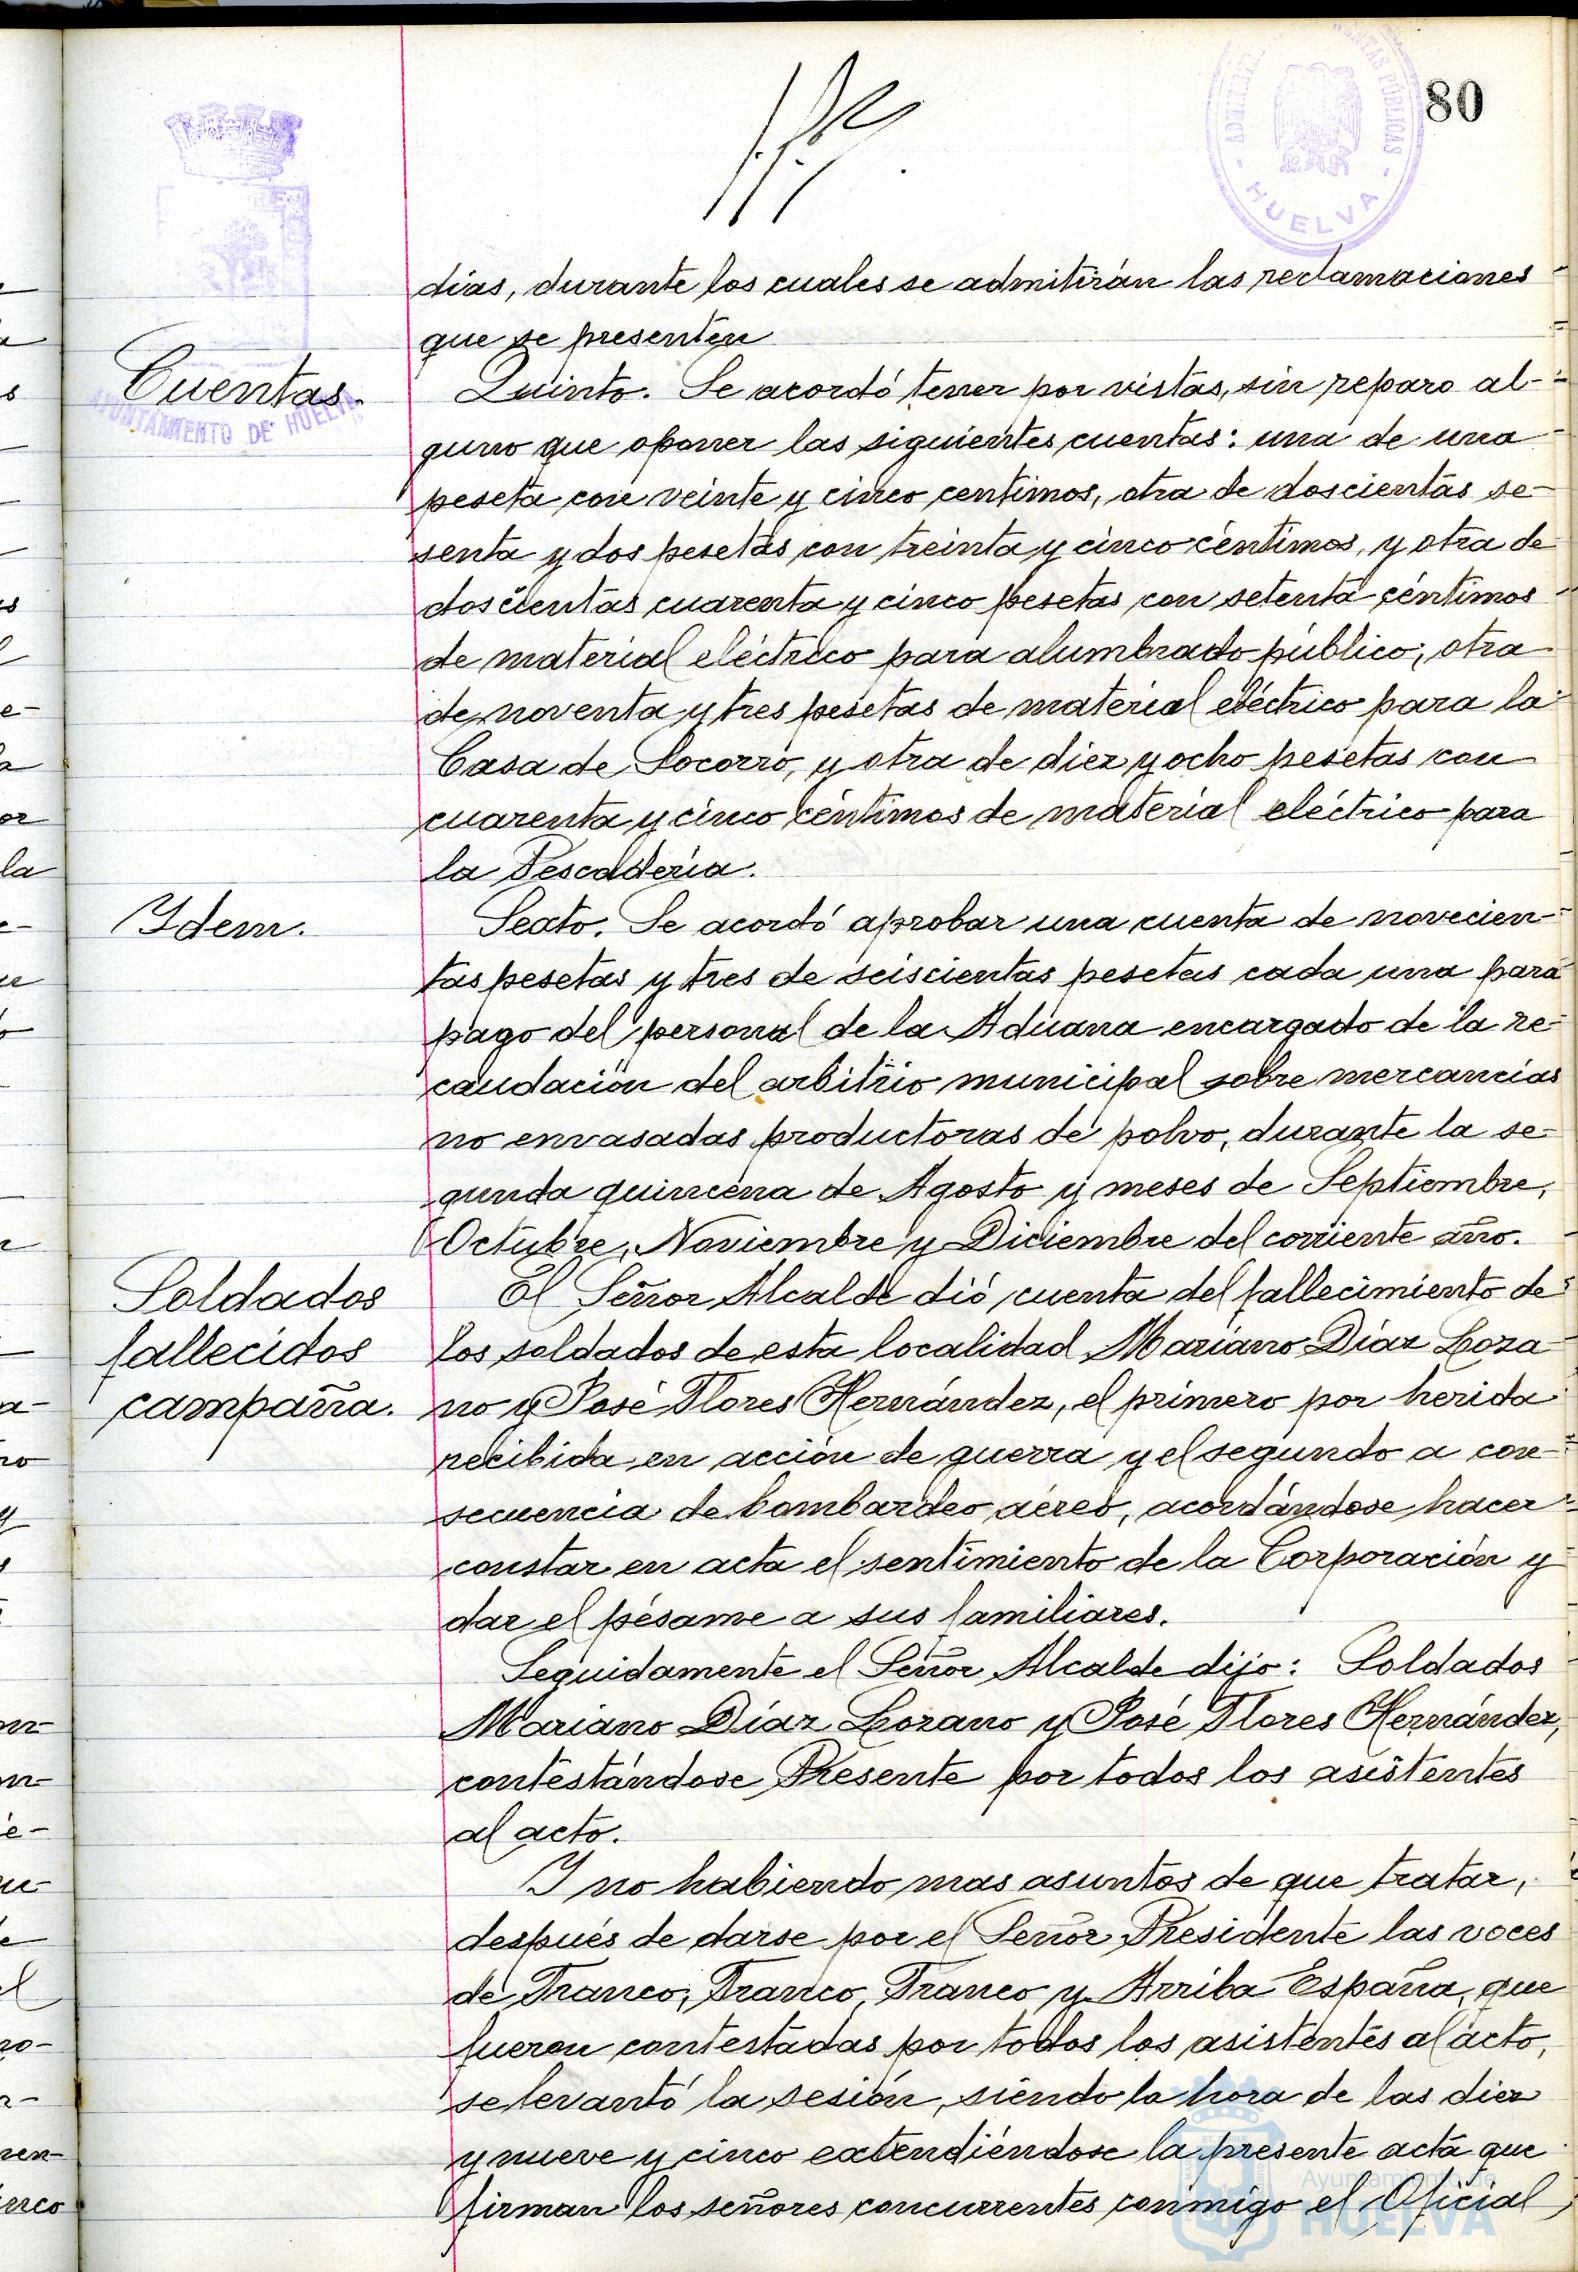 80
HUELVA
días, durante los cuales se admitirán las reclamaciones
que se presenten
Cuentas.
AYUNTAMIENTO DE HUELVA
Quinto. Se acordó tener por vistas, sin reparo al-
guno que oponer las siguientes cuentas: una de una
peseta con veinte y cinco centimos, otra de doscientas se-
senta y dos pesetas con treinta y cinco céntimos, y otra de
doscientas cuarenta y cinco pesetas con setenta céntimos
de material eléctrico para alumbrado público; otra
de noventa y tres pesetas de material eléctrico para la
Casa de Socorro, y otra de diez y ocho pesetas con
cuarenta y cinco céntimos de material eléctrico para
la Pescadería.
Idem.
Sexto. Se acordó aprobar una cuenta de novecien-
tas pesetas y tres de seiscientas pesetas cada una para
pago del personal de la Aduana encargado de la re-
caudación del arbitrio municipal sobre mercancías
no envasadas productoras de polvo, durante la se-
gunda quincena de Agosto y meses de Septiembre,
Octubre, Noviembre y Diciembre del corriente año.
Soldados
fallecidos
campaña.
El Señor Alcalde dió cuenta del fallecimiento de
los soldados de esta localidad Mariano Díaz Loza-
no y José Flores Hernández, el primero por herida
recibida en acción de guerra y el segundo a con-
secuencia de bombardeo aéreo, acordándose hacer
constar en acta el sentimiento de la Corporación y
dar el pésame a sus familiares.
Seguidamente el Señor Alcalde dijo: Soldados
Mariano Díaz Lozano y José Flores Hernández,
contestándose Presente por todos los asistentes
al acto.
Y no habiendo mas asuntos de que tratar,
después de darse por el Señor Presidente las voces
de Franco, Franco, Franco y Arriba España, que
fueron contestadas por todos los asistentes al acto,
se levantó la sesión, siendo la hora de las diez
y nueve y cinco extendiéndose la presente acta que
firman los señores concurrentes conmigo el Oficial
Ayuntamiento de
HUELVA